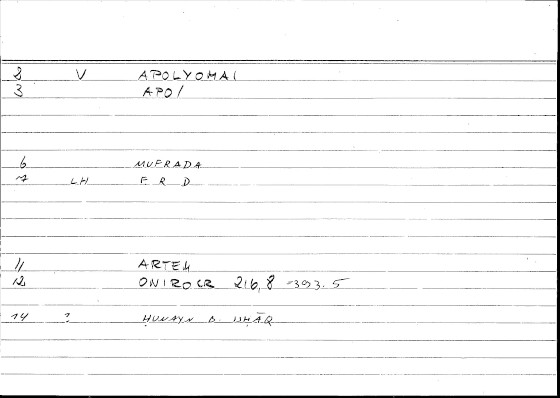 2 V APOLYOMAI
3 APO/
6 MUFRADA
7 LH F R D
11 ARTEM
12 ONIROCR 216,8 -393.5
14 ? ḤUNAYN B. ISḤĀQ